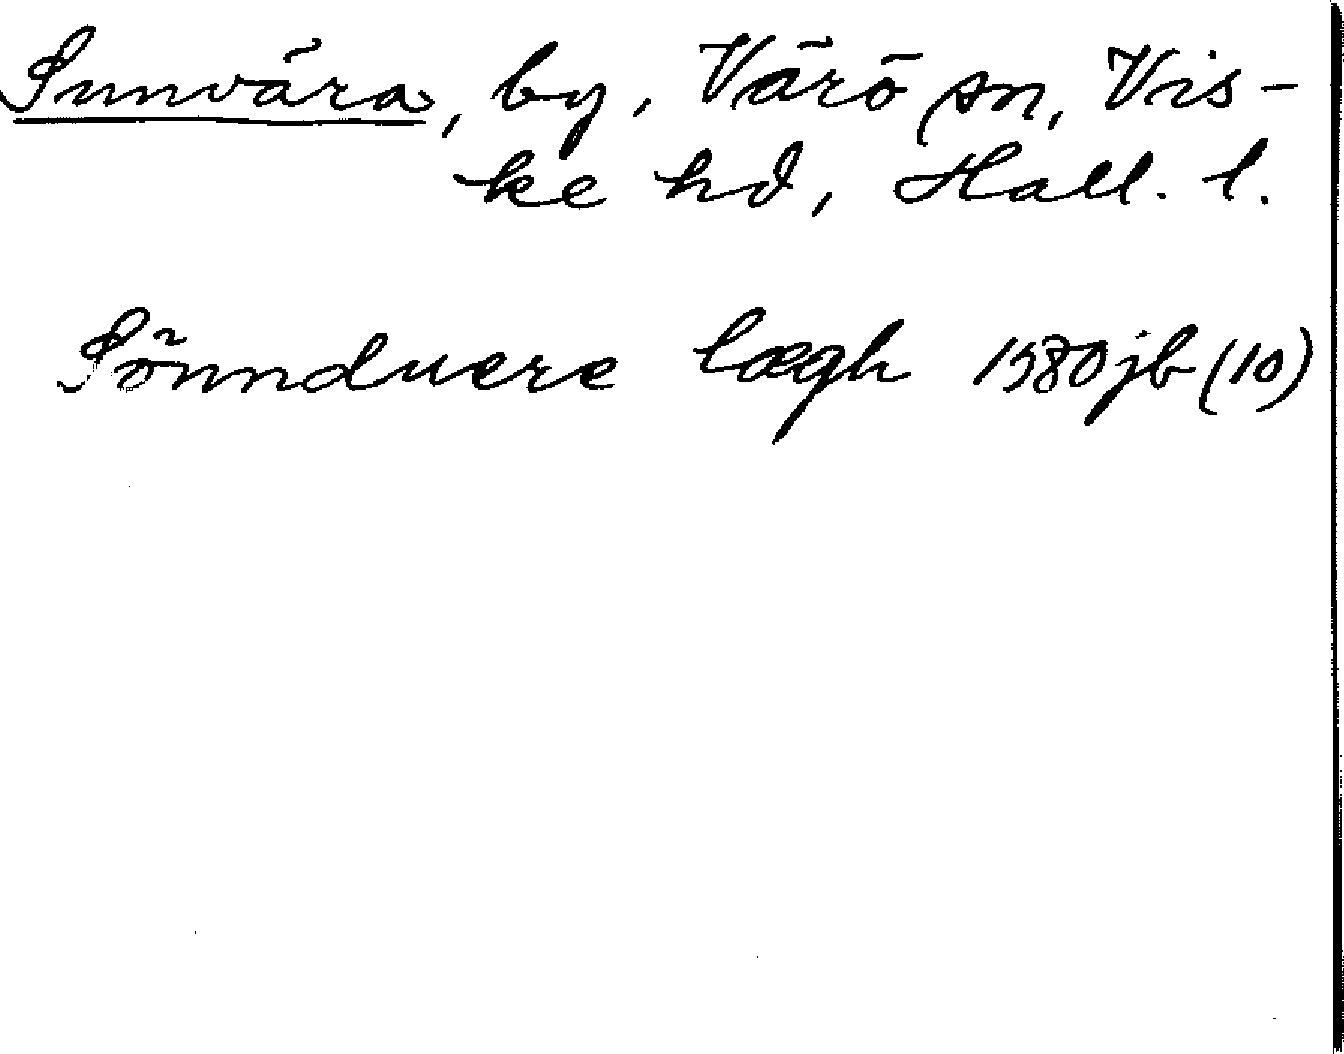 Sunvära, by, Värö sn, Vis-
ke hd, Hall. l.
Sönnduere lægh 1580jb(10)